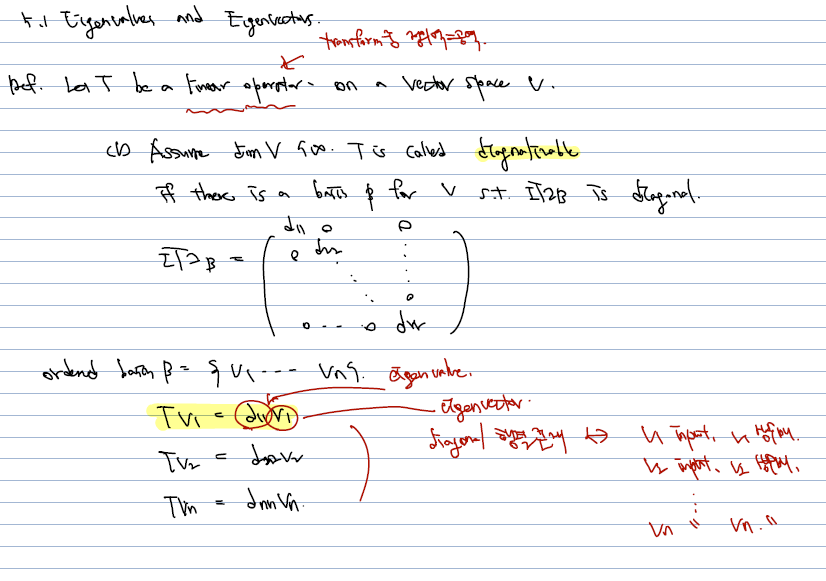 5.1 Eigenvalues and Eigenvectors.
transform 중 정의역=공역.
Def. Let T be a linear operator on a vector space V.
(1) Assume dim V < ∞. T is called diagonalizable
if there is a basis β for V s.t. [T]β is diagonal.
d11 0 0
[T]β = ( 0 d22 ⋮
⋱ ⋮
⋱ 0
0 --- 0 dnn )
ordered basis β = { V1 ---- Vn }. eigenvalue.
TV1 = d11 V1 eigenvector.
diagonal ⇔ V1 input, V1 방향.
TV2 = d22 V2 V2 input, V2 방향.
⋮
TVn = dnn Vn. Vn " Vn. "